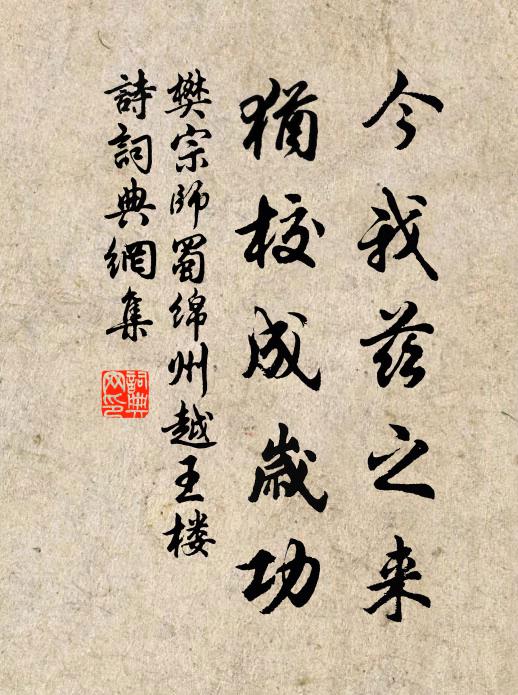 今我茲之来
猶校成歲功
樊宗师蜀绵州越王楼
詩詞典網集
詞典
网印